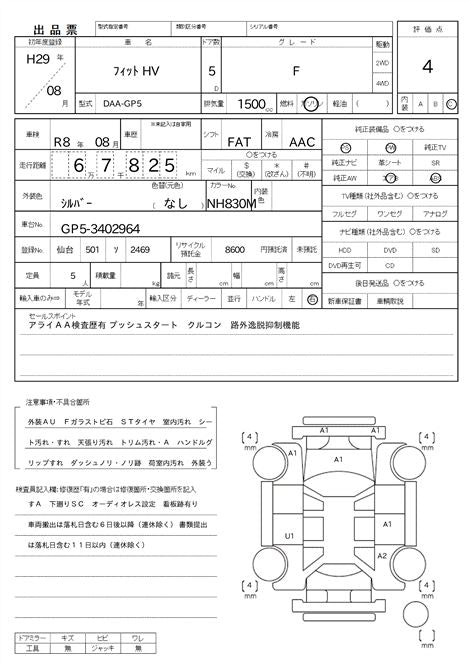 出品票 型式指定番号 類別区分番号 シリアル番号
評価点
初年度登録 車名 ドア数 グレード 駆動
H29 年 08 月
フィット HV 5 D F 2WD 4WD
4
型式 DAA-GP5 排気量 1500 cc 燃料 ガソリン 軽油 ( )
内装 A B C
車検 R8 年 08 月 車歴 ※未記入は自家用 シフト FAT 冷房 AAC
純正装備品 ○をつける
PS PW 純正TV
走行距離 6 万 7 千 8 2 5 km ○をつける マイル $ (交換) * (改ざん) # (不明)
純正ナビ 革シート SR
純正AW エアB ABS
外装色 シルバー 色替(元色) ( なし ) カラーNo. NH830M 内装色
TV種類(社外品含む) ○をつける
フルセグ ワンセグ アナログ
車台No. GP5-3402964
ナビ種類(社外品含む) ○をつける
登録No. 仙台 501 ソ 2469 リサイクル預託金 8600 円預託済 未預託
HDD DVD SD
DVD再生可 CD
定員 5 人 積載量 kg 諸元 長さ cm 幅 cm 高さ cm
後日発送品 ○をつける
輸入車のみ⇨ モデル年式 年 輸入区分 ディーラー 並行 ハンドル 左 右
新車保証書 車輌取説
セールスポイント
アライAA検査歴有 プッシュスタート クルコン 路外逸脱抑制機能
注意事項・不具合箇所
外装AU Fガラストビ石 STタイヤ 室内汚れ シー
ト汚れ・すれ 天張り汚れ トリム汚れ・A ハンドルグ
リップすれ ダッシュノリ・ノリ跡 荷室内汚れ 外装う
検査員記入欄:修復歴「有」の場合は修復箇所・交換箇所を記入
すA 下廻りSC オーディオレス設定 看板跡有り
車両搬出は落札日含む6日後以降(連休除く) 書類提出
は落札日含む11日以内(連休除く)
A1
A1 A1
[ 4 ] mm [ 4 ] mm
U1 A1
A2
[ 4 ] mm [ 4 ] mm
[ ] mm
ドアミラー キズ ヒビ ワレ
工具 無 ジャッキ 無